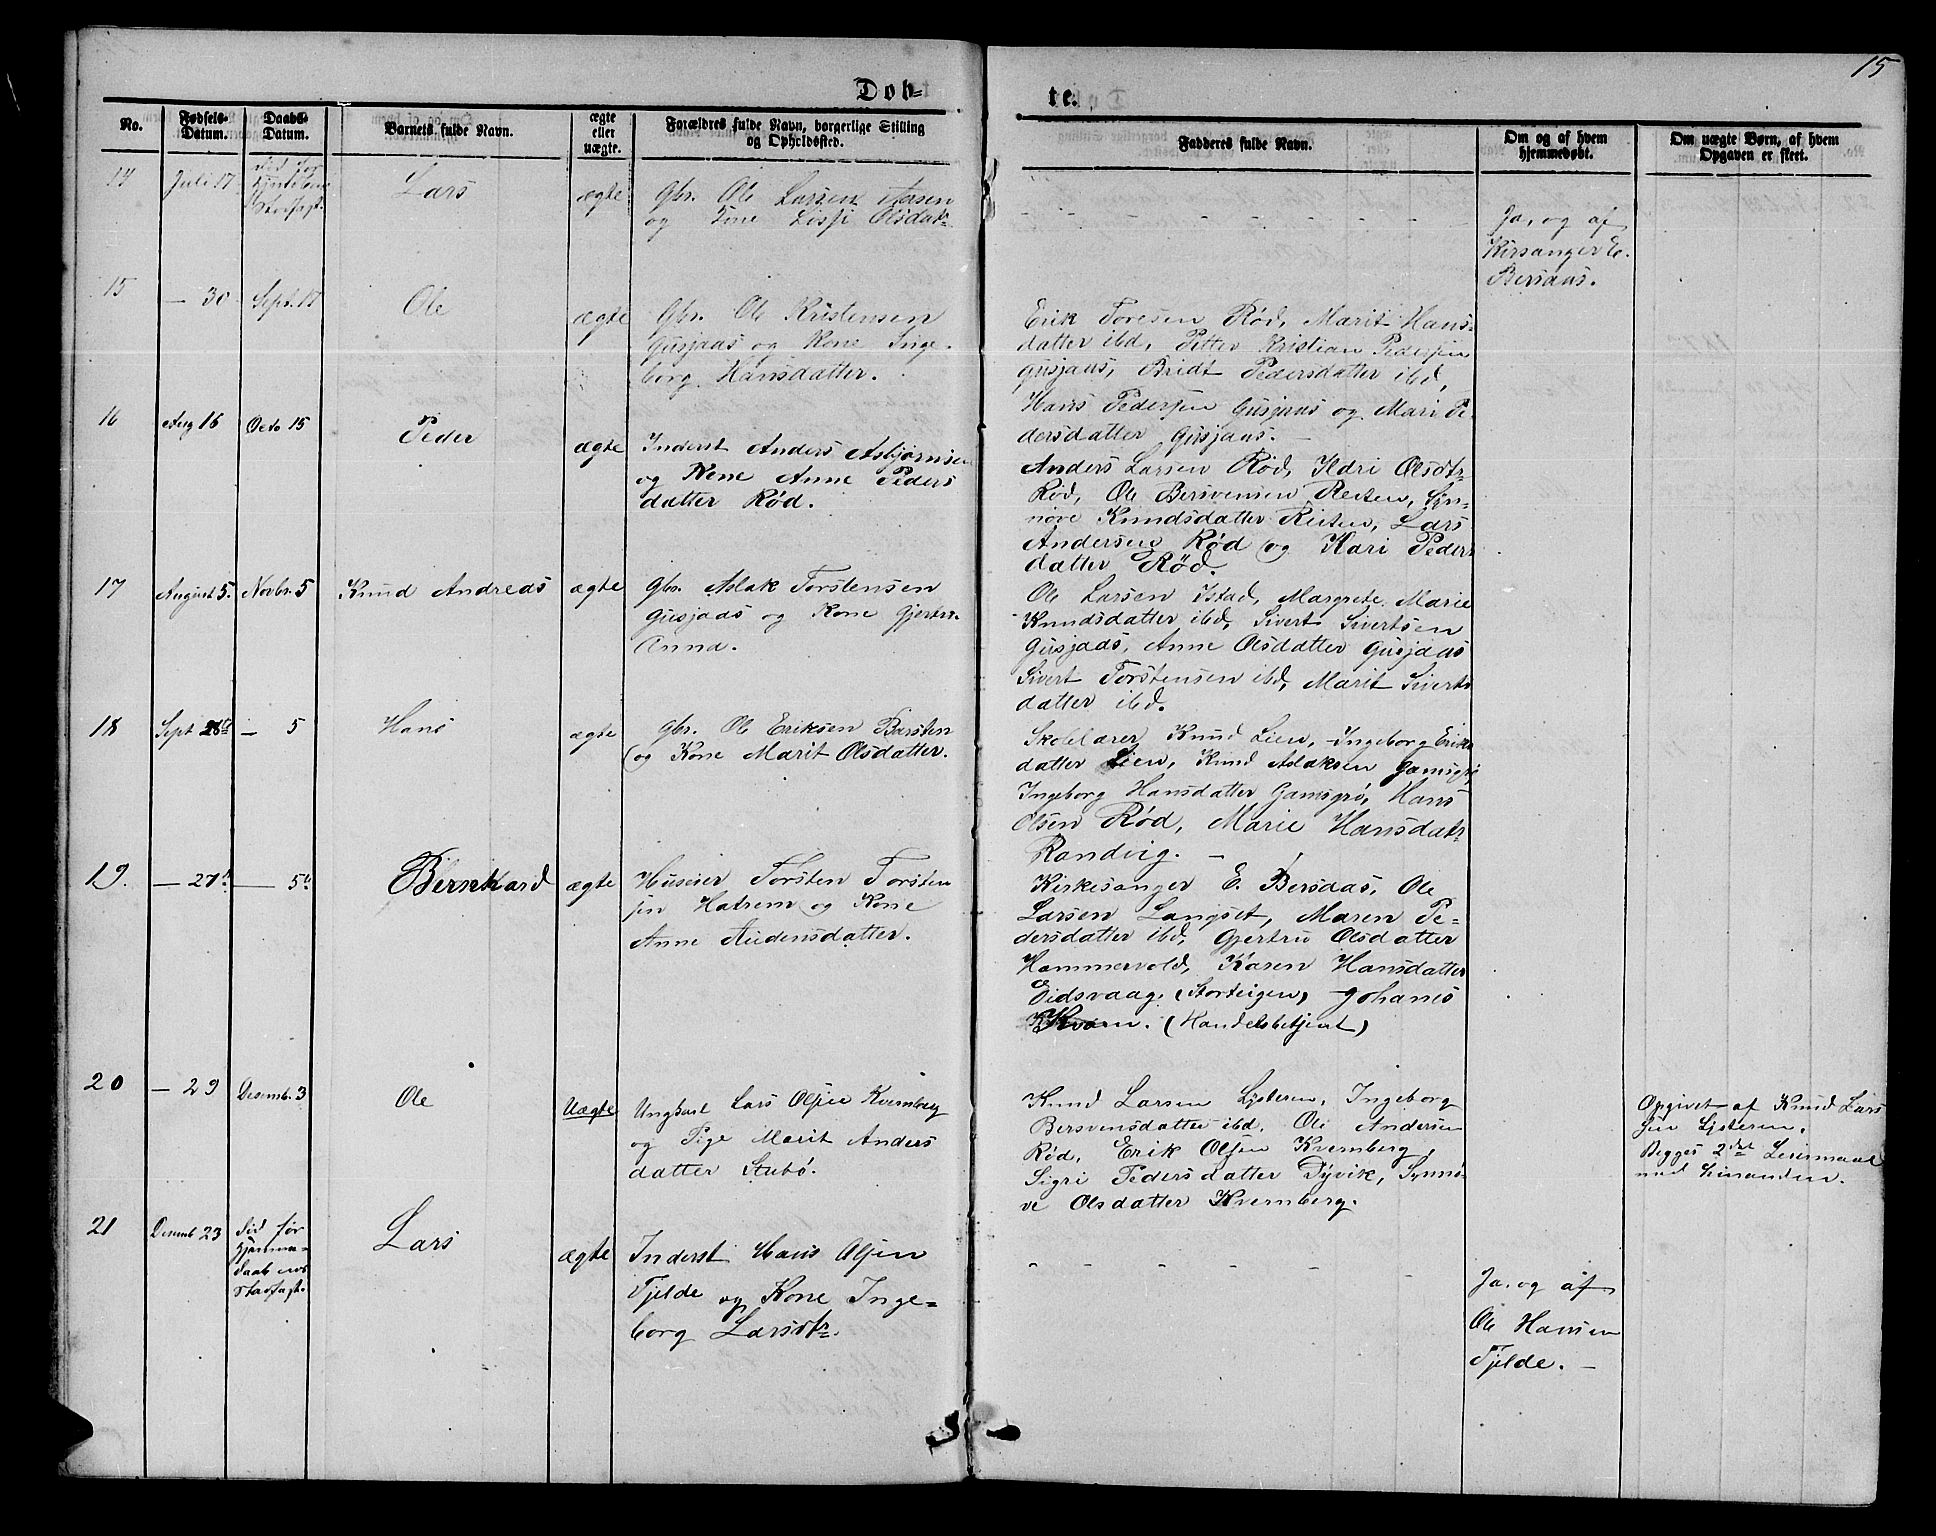 15
Døb-
te.
No.
Fødsels-
Datum.
Daabs-
Datum.
Barnets fulde Navn.
ægte
eller
uægte.
Forældres fulde Navn, borgerlige Stilling
og Opholdssted.
Fadderes fulde Navn.
Om og af hvem
hjemmedøbt.
Om uægte Børn, af hvem
Opgaven er skeet.
14
Juli 17
død før
Stadfæst.
Lars
ægte
Gbr. Ole Larsen
og Kone Olsdatr.
Ja, og af
Kirsanger E.
Bersaas.
15
— 30
Sept. 17
Ole
ægte
Gbr. Ole Kristensen
Gusjaas og Kone Inge-
borg Hansdatter.
Erik Toresen Rød, Marit Hans-
datter ibd, Petter Kristian Pedersen
Gusjaas, Bridt Pedersdatter ibd,
Hans Pedersen Gusjaas og Mari Pe-
dersdatter Gusjaas.
16
Aug 16
Octo 15
Peder
ægte
Inderst Anders Asbjørnsen
og Kone Anne Peders
datter Rød.
Anders Larsen Rød, Ildri Olsdtr
Rød, Ole Bersvensen Reiten, Syn-
nøve Knudsdatter Reiten, Lars
Andersen Rød og Kari Peders
datter Rød.
17
August 5.
Novbr. 5
Knud Andreas
ægte
Gbr. Aslak Torstensen
Gusjaas og Kone Gjertru
Anna.
Ole Larsen Istad, Margrete Marie
Knudsdatter ibd, Sivert Sivertsen
Gusjaas, Anne Olsdatter Gusjaas
Sivert Torstensen ibd, Marit Siverts
datter ibd.
18
Sept 26te
— 5
Hans
ægte
Gbr. Ole Eriksen Barsten
og Kone Marit Olsdatter.
Skolelærer Knud Lien, Ingeborg Eriks
datter Lien, Knud Aslaksen Gamsgrø
Ingeborg Hansdatter Gamsgrø, Hans
Olsen Rød, Marie Hansdatr
Randvig. —
19.
— 27
— 5
Bernhard
ægte
Huseier Torsten Torsten
sen Hatrem og Kone
Anne Audensdatter.
Kirkesanger E. Bersaas, Ole
Larsen Langset, Maren Pe-
dersdatter ibd, Gjertru Olsdatter
Hammervold, Karen Hansdatter
Eidsvaag, (Storteigen) Johanes
Kvam. (Handelsbetjent)
20
— 29
Desemb. 3
Ole
Uægte
Ungkarl Lars Olsen Kvernberg
og Pige Marit Anders
datter Stubø.
Knud Larsen Lysteren, Ingeborg
Bersvensdatter ibd. Ole Andersen
Rød, Erik Olsen Kvernberg,
Sigri Pedersdatter Dyvik, Synnø-
ve Olsdatter Kvernberg.
Opgivet af Knud Lars
sen Lysteren.
Begges 2det Leiermaal
med hinanden.
21
Desemb 23
død før
Hjemme-
daab ens
Stadfæst.
Lars
ægte
Inderst Hans Olsen
Tjelde og Kone Inge-
borg Larsdtr.
Ja, og af
Ole Hansen
Tjelde. —